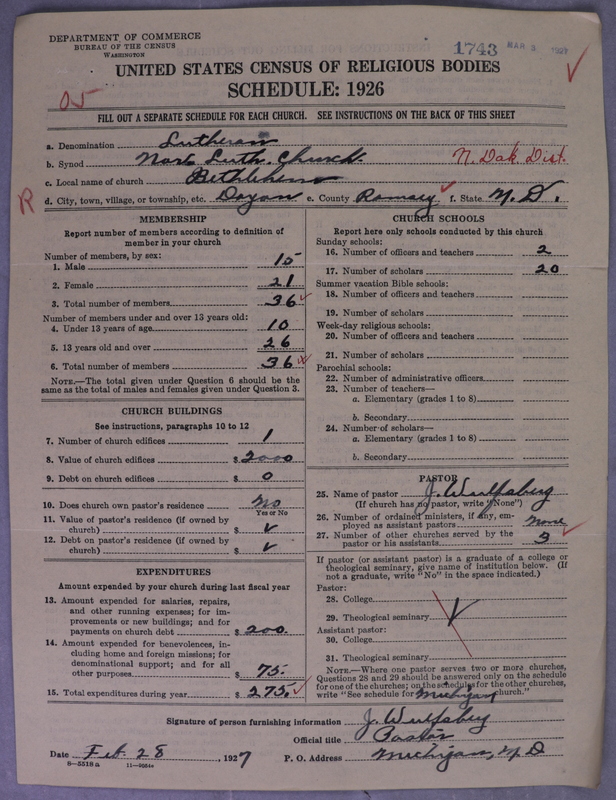 DEPARTMENT OF COMMERCE
BUREAU OF THE CENSUS
WASHINGTON
1743 MAR 3 1927
UNITED STATES CENSUS OF RELIGIOUS BODIES
SCHEDULE: 1926
05
FILL OUT A SEPARATE SCHEDULE FOR EACH CHURCH. SEE INSTRUCTIONS ON THE BACK OF THIS SHEET
a. Denomination Lutheran
b. Synod Norw Luth. Church. N. Dak Dist.
c. Local name of church Bethlehem
R
d. City, town, village, or township, etc. Doyon e. County Ramsey f. State N. D.
MEMBERSHIP
Report number of members according to definition of member in your church
Number of members, by sex:
1. Male 15
2. Female 21
3. Total number of members 36
Number of members under and over 13 years old:
4. Under 13 years of age 10
5. 13 years old and over 26
6. Total number of members 36
NOTE.—The total given under Question 6 should be the same as the total of males and females given under Question 3.
CHURCH BUILDINGS
See instructions, paragraphs 10 to 12
7. Number of church edifices 1
8. Value of church edifices $ 2000
9. Debt on church edifices $ 0
10. Does church own pastor's residence No
Yes or No
11. Value of pastor's residence (if owned by church) $
12. Debt on pastor's residence (if owned by church) $
EXPENDITURES
Amount expended by your church during last fiscal year
13. Amount expended for salaries, repairs, and other running expenses; for improvements or new buildings; and for payments on church debt $ 200
14. Amount expended for benevolences, including home and foreign missions; for denominational support; and for all other purposes $ 75.
15. Total expenditures during year $ 275.
CHURCH SCHOOLS
Report here only schools conducted by this church
Sunday schools:
16. Number of officers and teachers 2
17. Number of scholars 20
Summer vacation Bible schools:
18. Number of officers and teachers
19. Number of scholars
Week-day religious schools:
20. Number of officers and teachers
21. Number of scholars
Parochial schools:
22. Number of administrative officers
23. Number of teachers—
a. Elementary (grades 1 to 8)
b. Secondary
24. Number of scholars—
a. Elementary (grades 1 to 8)
b. Secondary
PASTOR
25. Name of pastor J. Wulfsberg
(If church has no pastor, write "None")
26. Number of ordained ministers, if any, employed as assistant pastors None
27. Number of other churches served by the pastor or his assistants 3
If pastor (or assistant pastor) is a graduate of a college or theological seminary, give name of institution below. (If not a graduate, write "No" in the space indicated.)
Pastor:
28. College
29. Theological seminary
Assistant pastor:
30. College
31. Theological seminary
NOTE.—Where one pastor serves two or more churches, Questions 28 and 29 should be answered only on the schedule for one of the churches; on the schedules for the other churches, write "See schedule for Michigan church."
Signature of person furnishing information J. Wulfsberg
Official title Pastor
Date Feb. 28, 1927 P. O. Address Michigan, N D
8—5518 a